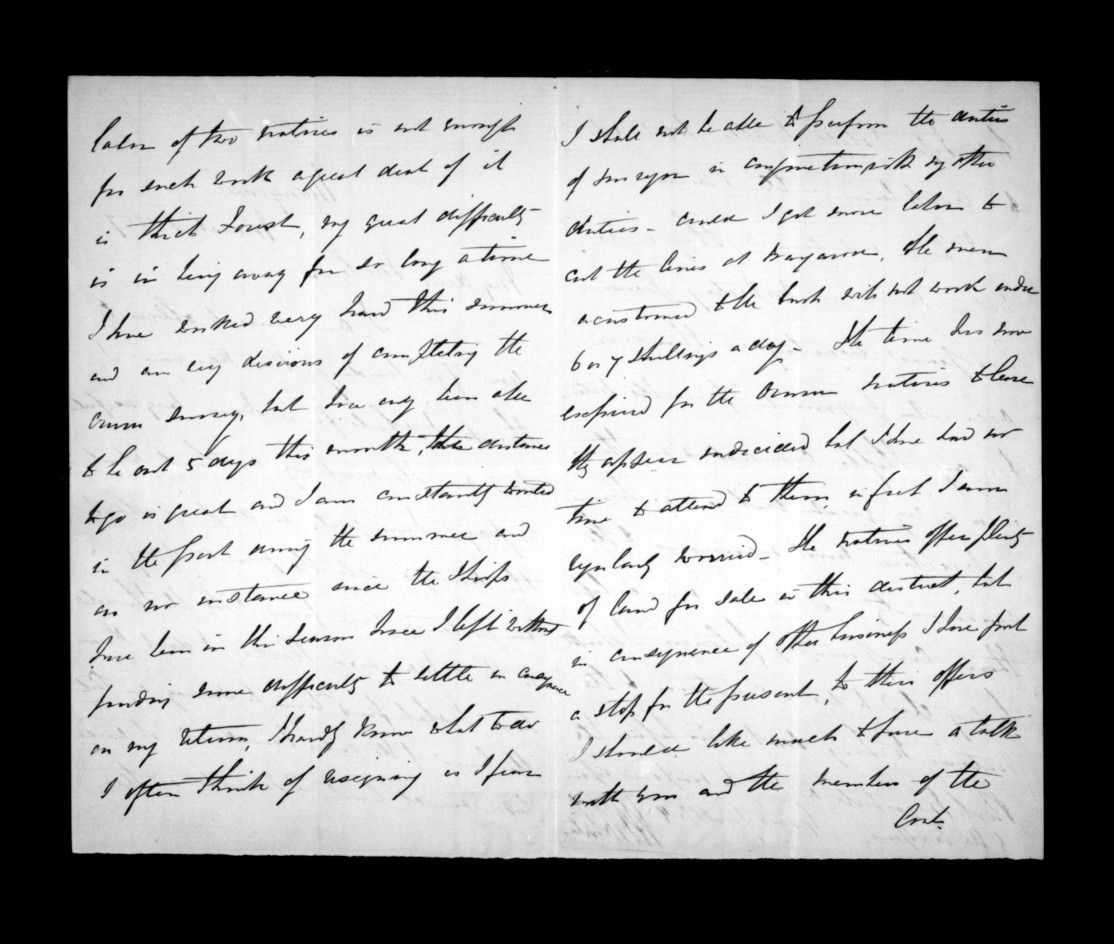 labor of two natives is not enough
for such work a great deal of it
is thick Forest, my great difficulty
is in being away for so long a time
I have worked very hard this summer
and am very desirous of completing the
survey, but have only been able
to be out 5 days this month, the distance
to go is great and I am constantly wanted
in the port during the summer and
on no instance since the Ships
have been in this season have I left without
finding some difficulty to settle in consequence
on my return, I hardly know what to do
I often think of resigning as I fear
I shall not be able to perform the duties
of surveyor in conjunction with my other
duties - could I get more labor to
cut the lines at the men
accustomed to the bush will not work under
6 or 7 shillings a day - The time has now
expired for the natives to leave
they appear undecided but I have had no
time to attend to them, in fact I am
regularly worried - The natives offer plenty
of land for sale in this district, but
in consequence of other business I have put
a stop for the present, to their offers
I should like much to have a talk
with you and the members of the
Cont.